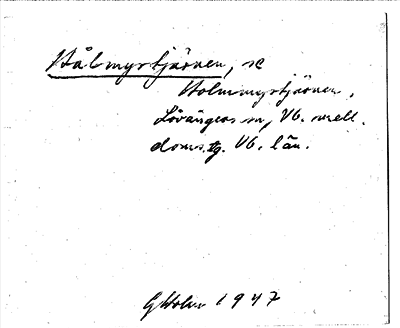 Hålmyrtjärnen, se
Holmmyrtjärnen,
Lövångers sn, Vb. mell.
doms.tg. Vb. län.
GHolm 1947